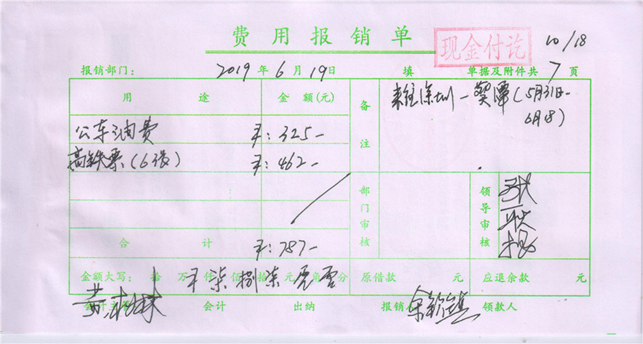 费用报销单 现金付讫 10/18
报销部门： 2019年6月19日填 单据及附件共7页
用途 金额(元) 备注 来往深圳一 (5月31日-6月18)
公车油费 ¥：325-
高铁票(6张) ¥：462-
部门审核 领导审核
合计 ¥：787-
金额大写： 拾万仟佰拾元角分 ¥ 柒捌柒 原借款 元 应退余款 元
会计 出纳 报销 领款人